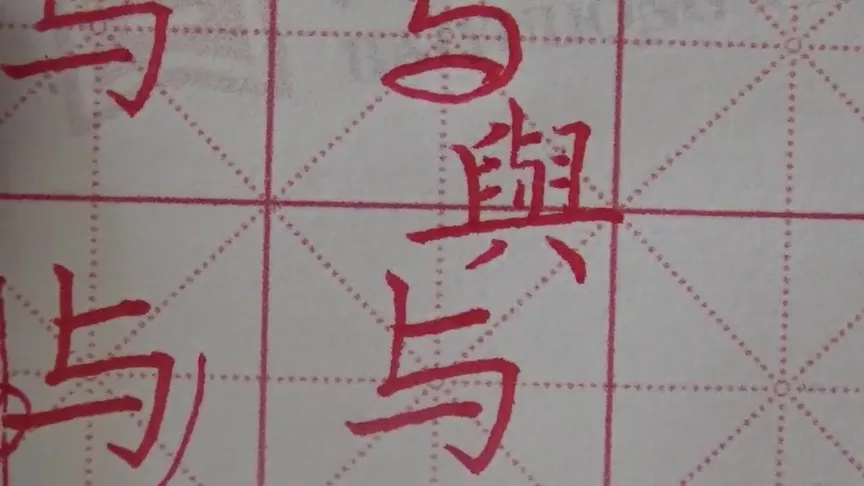 与 与
與
与 与